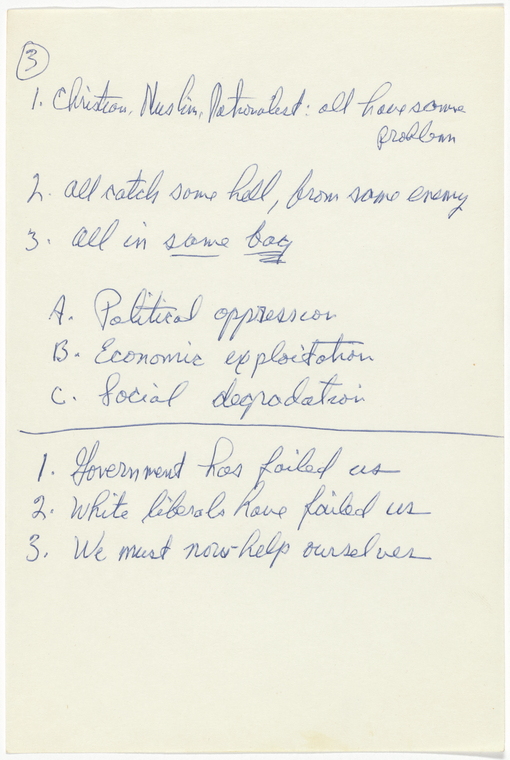 3
1. Christian, Muslim, Nationalist: all have same
problem
2. all catch same hell, from same enemy
3. all in same bag
A. Political oppression
B. Economic exploitation
C. Social degradation
1. Government has failed us
2. White liberals have failed us
3. We must now help ourselves